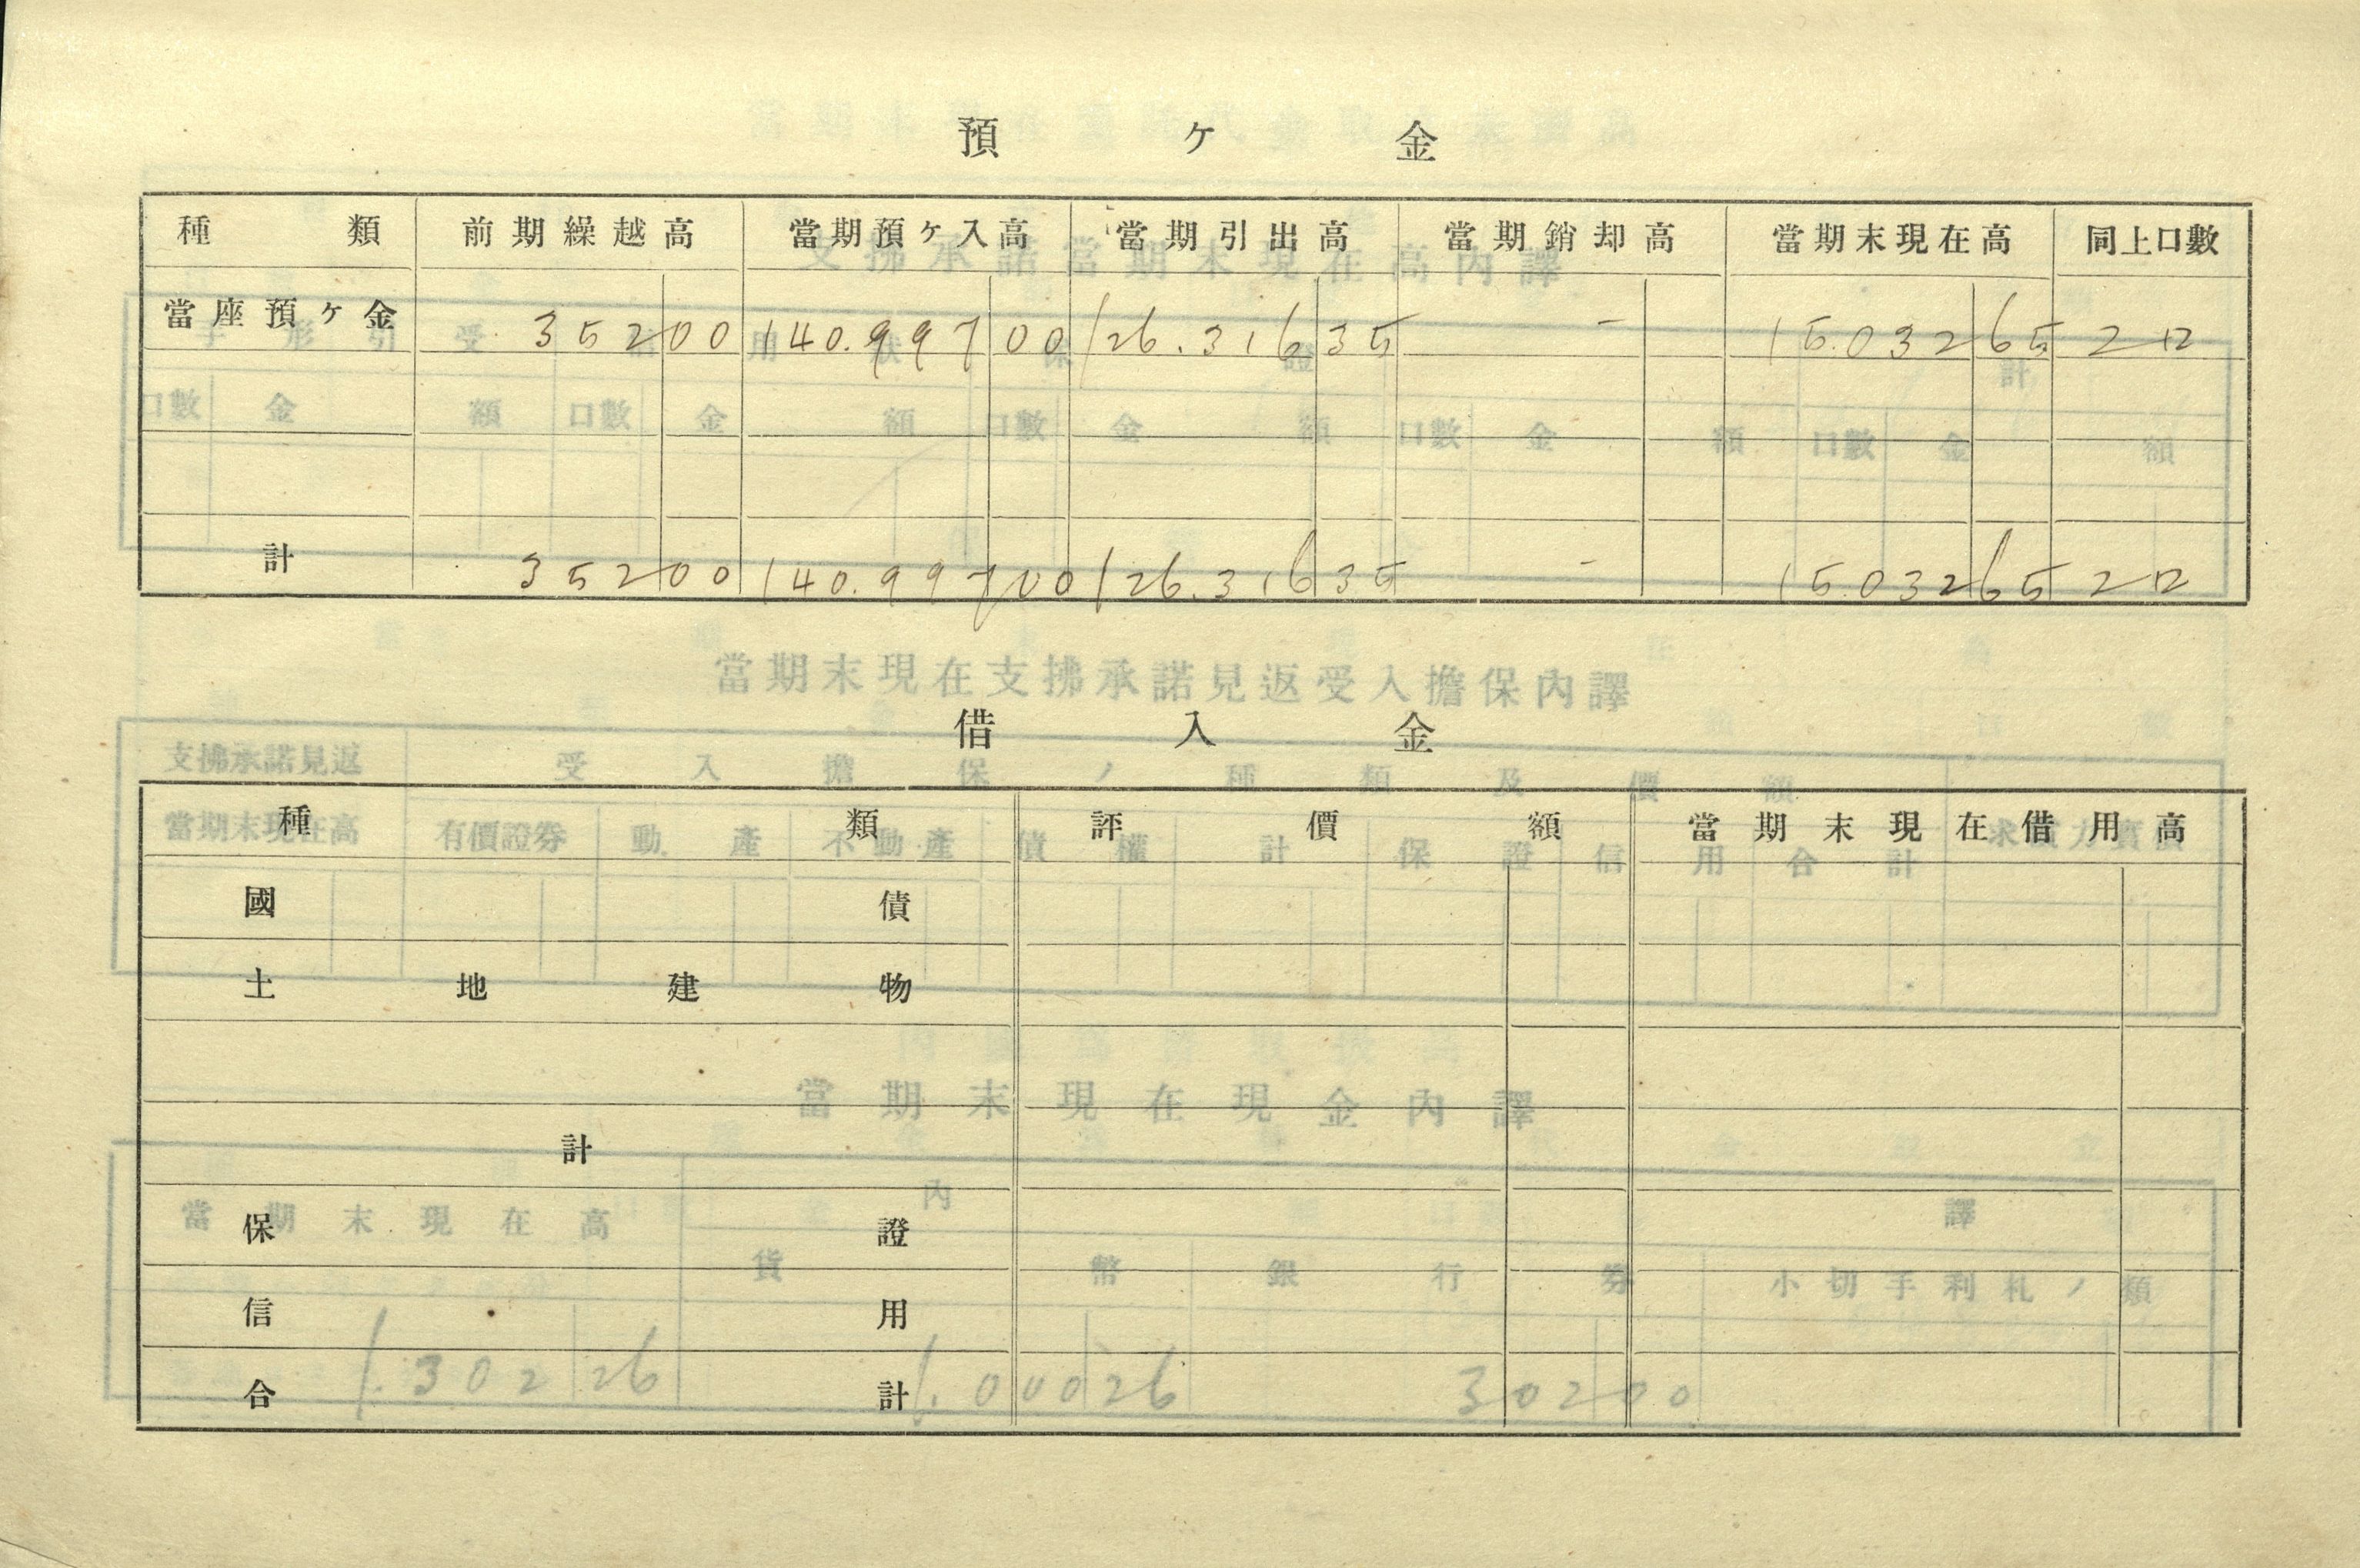 預ヶ金
種類 前期繰越高 當期預ヶ入高 當期引出高 當期銷却高 當期末現在高 同上口數
當座預ヶ金 352 00 140.997 00 126.316 35 - 15.032 65 2口
計 352 00 140.997 00 126.316 35 - 15.032 65 2口
借入金
種類 評價額 當期末現在借用高
國債
土地建物
計
保證
信用
合計